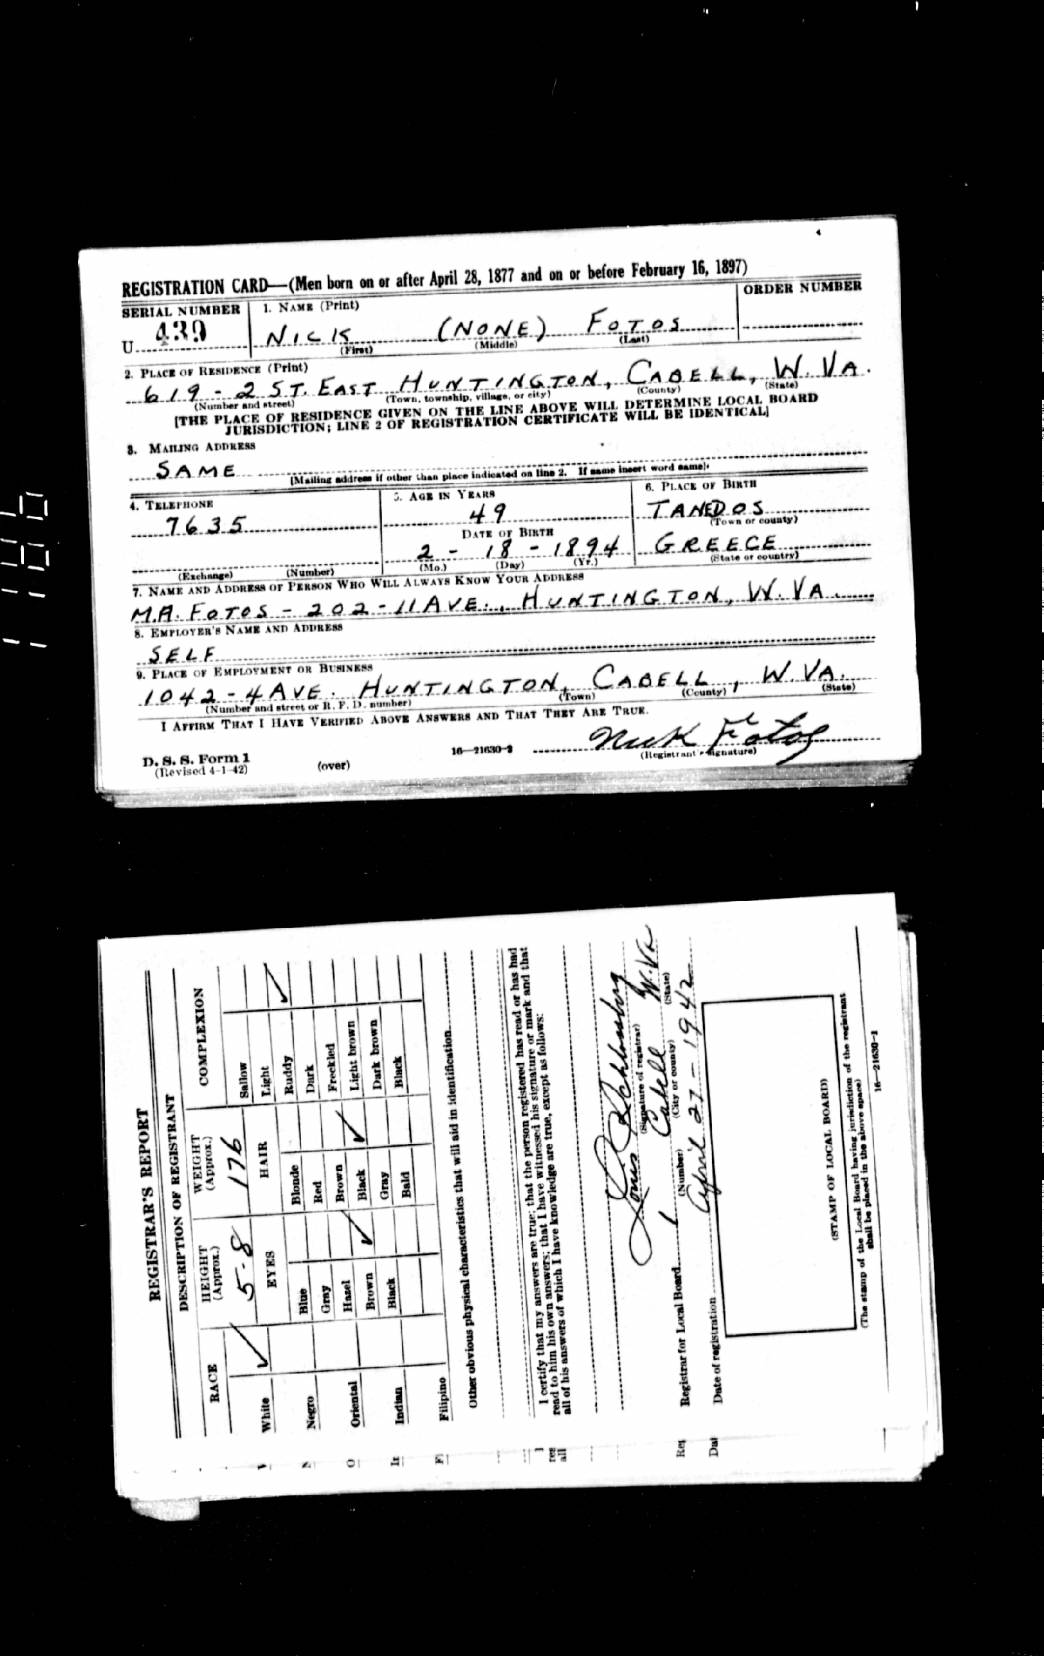 REGISTRATION CARD—(Men born on or after April 28, 1877 and on or before February 16, 1897)
SERIAL NUMBER
1. NAME (Print)
ORDER NUMBER
U 439
NICK (NONE) FOTOS
(First) (Middle) (Last)
2. PLACE OF RESIDENCE (Print)
619 - 2 ST. EAST HUNTINGTON, CABELL, W. VA.
(Number and street) (Town, township, village, or city) (County) (State)
[THE PLACE OF RESIDENCE GIVEN ON THE LINE ABOVE WILL DETERMINE LOCAL BOARD
JURISDICTION; LINE 2 OF REGISTRATION CERTIFICATE WILL BE IDENTICAL]
3. MAILING ADDRESS
SAME
[Mailing address if other than place indicated on line 2. If same insert word same]
4. TELEPHONE
7635
(Exchange) (Number)
5. AGE IN YEARS
49
DATE OF BIRTH
2 - 18 - 1894
(Mo.) (Day) (Yr.)
6. PLACE OF BIRTH
TANEDOS
(Town or county)
GREECE
(State or country)
7. NAME AND ADDRESS OF PERSON WHO WILL ALWAYS KNOW YOUR ADDRESS
M.A. FOTOS - 202 - 11 AVE., HUNTINGTON, W. VA.
8. EMPLOYER'S NAME AND ADDRESS
SELF
9. PLACE OF EMPLOYMENT OR BUSINESS
1042 - 4 AVE. HUNTINGTON, CABELL, W. VA.
(Number and street or R. F. D. number) (Town) (County) (State)
I AFFIRM THAT I HAVE VERIFIED ABOVE ANSWERS AND THAT THEY ARE TRUE.
Nick Fotos
(Registrant's signature)
D. S. S. Form 1
(Revised 4-1-42)
(over)
16—21630-2
REGISTRAR'S REPORT
DESCRIPTION OF REGISTRANT
RACE
White ✓
Negro
Oriental
Indian
Filipino
HEIGHT
(Approx.)
5-8
WEIGHT
(Approx.)
176
EYES
Blue
Gray
Hazel
Brown ✓
Black
HAIR
Blonde
Red
Brown
Black ✓
Gray
Bald
COMPLEXION
Sallow
Light
Ruddy ✓
Dark
Freckled
Light brown
Dark brown
Black
Other obvious physical characteristics that will aid in identification
I certify that my answers are true; that the person registered has read or has had
read to him his own answers; that I have witnessed his signature or mark and that
all of his answers of which I have knowledge are true, except as follows:
Louis
(Signature of registrar)
Registrar for Local Board 1 Cabell W. Va
(Number) (City or county) (State)
Date of registration April 27 - 1942
(STAMP OF LOCAL BOARD)
(The stamp of the Local Board having jurisdiction of the registrant
shall be placed in the above space)
16—21630-2